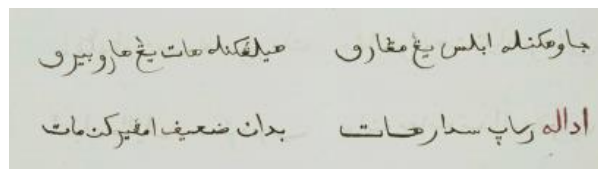 جاوهکنله ابلس يڠ مڠارو هيلڠکنله هات يڠ هاروبيرو
اداله رساڽ سدارهات بدان ضعيف امڤيرکن مات